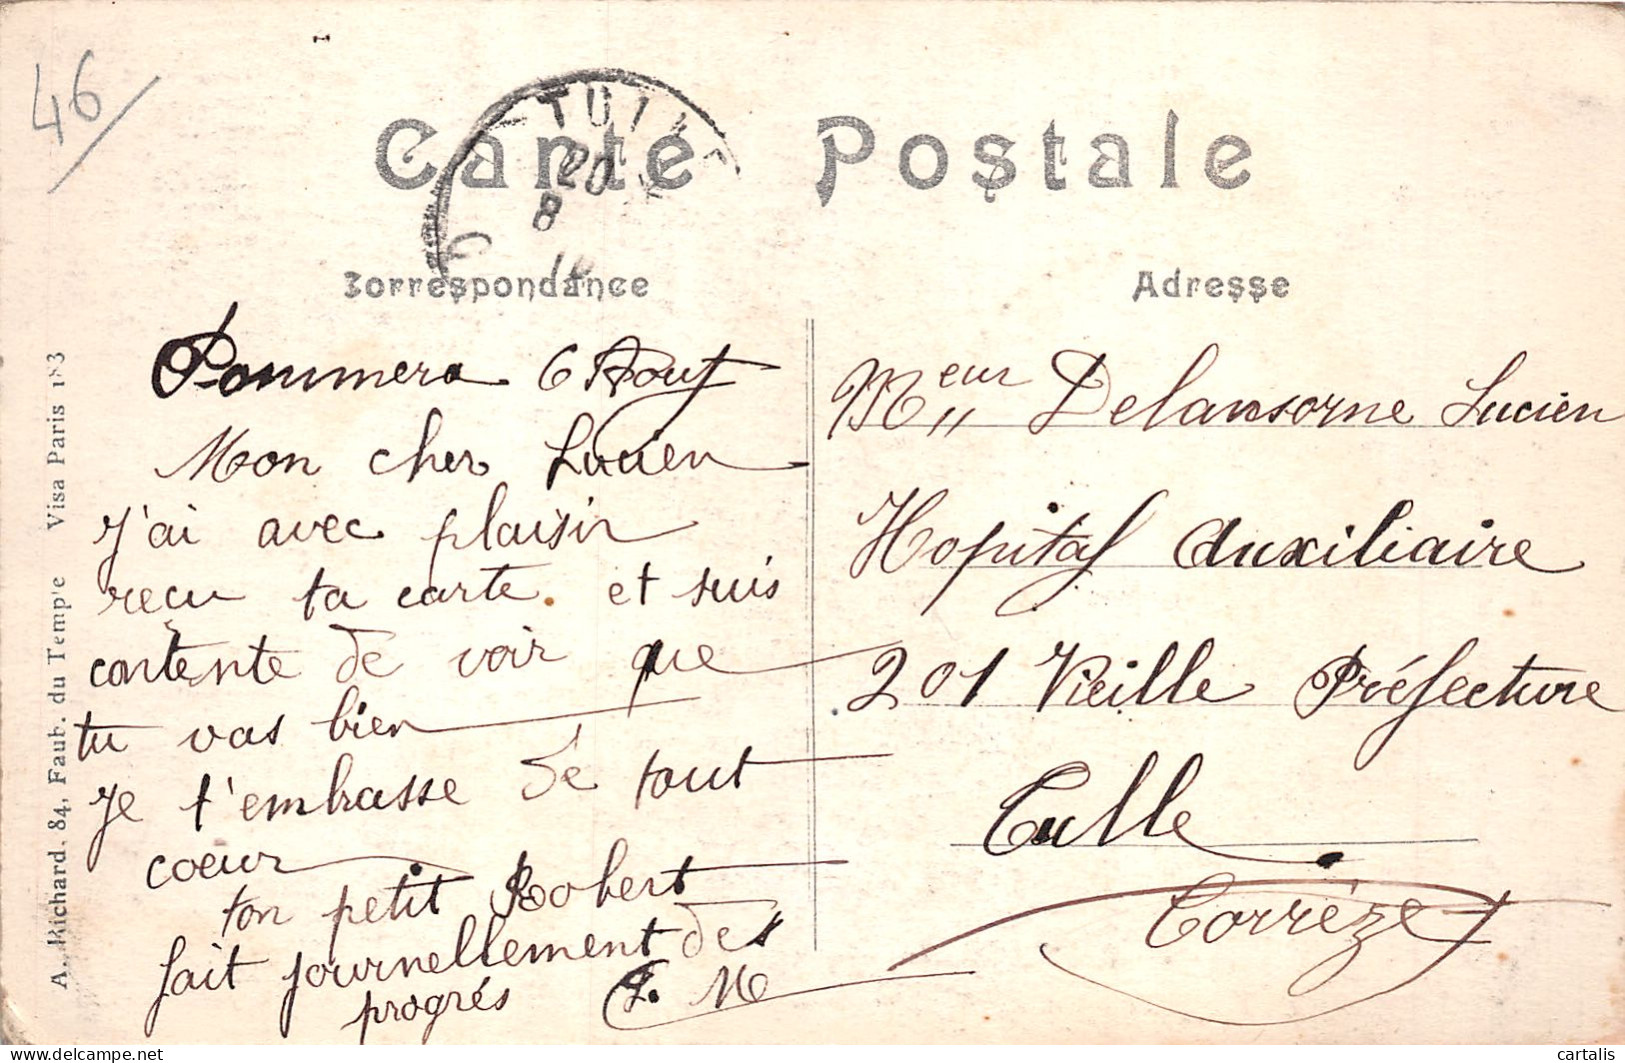 46
Carte Postale
TULLE
20
8
Correspondance
Adresse
Pommera 6 Aout
Mon cher Lucien
j'ai avec plaisir
reçu ta carte. et suis
contente de voir que
tu vas bien
je t'embrasse de tout
coeur
ton petit Robert
fait journellement des
progrés F. M
Meur Delansorne Lucien
Hopital Auxiliaire
201 Vieille Préfecture
Tulle
Corrèze
A. Richard. 84, Faub. du Temple Visa Paris 183
delcampe.net
cartalis